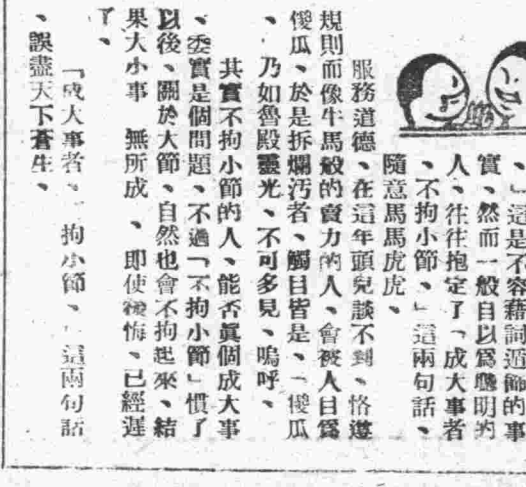 、」這是不容藉詞遁飾的事
實、然而一般自以爲聰明的
人、往往抱定了「成大事者
、不拘小節、」這兩句話、
隨意馬馬虎虎、
服務道德、在這年頭兒談不到、恪遵
規則而像牛馬般的賣力的人、會被人目爲
傻瓜、於是拆爛汚者、觸目皆是、「傻瓜
、乃如魯殿靈光、不可多見、嗚呼、
其實不拘小節的人、能否眞個成大事
、委實是個問題、不過「不拘小節」慣了
以後、關於大節、自然也會不拘起來、結
果大小事 無所成、即使後悔、已經遲
了、
「成大事者、 拘小節、」這兩句話
、誤盡天下蒼生、